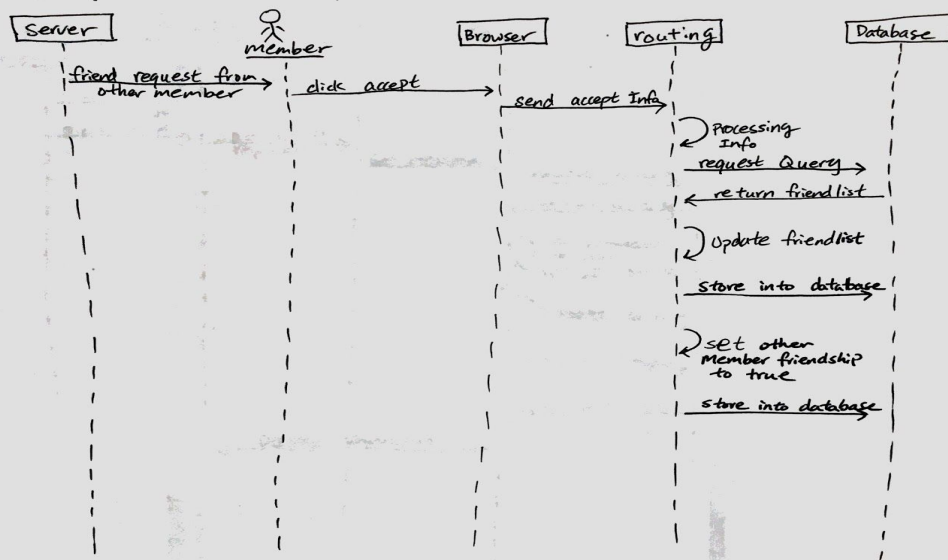 Server
member
Browser
routing
Database
friend request from
other member
click accept
send accept Info
Processing
Info
request Query
return friendlist
Update friendlist
store into database
set other
Member friendship
to true
store into database